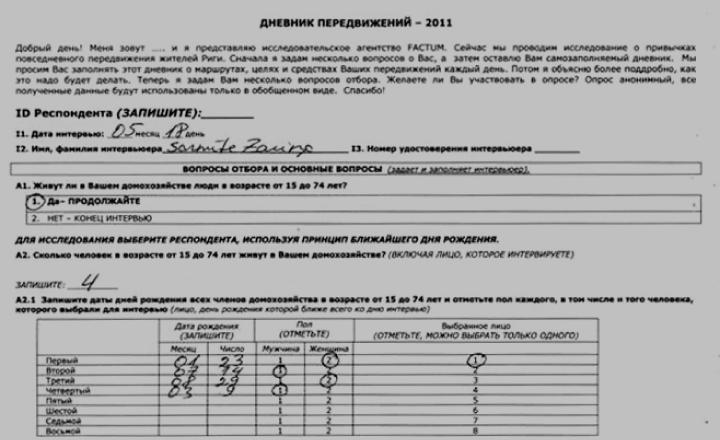 ДНЕВНИК ПЕРЕДВИЖЕНИЙ – 2011
Добрый день! Меня зовут ..... и я представляю исследовательское агентство FACTUM. Сейчас мы проводим исследование о привычках
повседневного передвижения жителей Риги. Сначала я задам несколько вопросов о Вас, а затем оставлю Вам самозаполняемый дневник. Мы
просим Вас заполнять этот дневник о маршрутах, целях и средствах Ваших передвижений каждый день. Потом я объясню более подробно, как
это надо будет делать. Теперь я задам Вам несколько вопросов отбора. Желаете ли Вы участвовать в опросе? Опрос анонимный, все
полученные данные будут использованы только в обобщенном виде. Спасибо!
ID Респондента (ЗАПИШИТЕ):
I1. Дата интервью: 05 месяц 18 день
I2. Имя, фамилия интервьюера Sarmite I3. Номер удостоверения интервьюера
ВОПРОСЫ ОТБОРА И ОСНОВНЫЕ ВОПРОСЫ (задает и заполняет интервьюер).
A1. Живут ли в Вашем домохозяйстве люди в возрасте от 15 до 74 лет?
1. Да– ПРОДОЛЖАЙТЕ
2. НЕТ – КОНЕЦ ИНТЕРВЬЮ
ДЛЯ ИССЛЕДОВАНИЯ ВЫБЕРИТЕ РЕСПОНДЕНТА, ИСПОЛЬЗУЯ ПРИНЦИП БЛИЖАЙШЕГО ДНЯ РОЖДЕНИЯ.
A2. Сколько человек в возрасте от 15 до 74 лет живут в Вашем домохозяйстве? (ВКЛЮЧАЯ ЛИЦО, КОТОРОЕ ИНТЕРВИРУЕТЕ)
ЗАПИШИТЕ: 4
A2.1 Запишите даты дней рождения всех членов домохозяйства в возрасте от 15 до 74 лет и отметьте пол каждого, в том числе и того человека,
которого выбрали для интервью (лицо, день рождения которой ближе всего ко дню интервью)
Дата рождения (ЗАПИШИТЕ) Пол (ОТМЕТЬТЕ) Выбранное лицо (ОТМЕТЬТЕ, МОЖНО ВЫБРАТЬ ТОЛЬКО ОДНОГО)
Месяц Число Мужчина Женщина
Первый 01 23 1 2 1
Второй 07 14 1 2
Третий 08 29 1 2 3
Четвертый 03 9 1 2 4
Пятый 1 2 5
Шестой 1 2 6
Седьмой 1 2 7
Восьмой 1 2 8